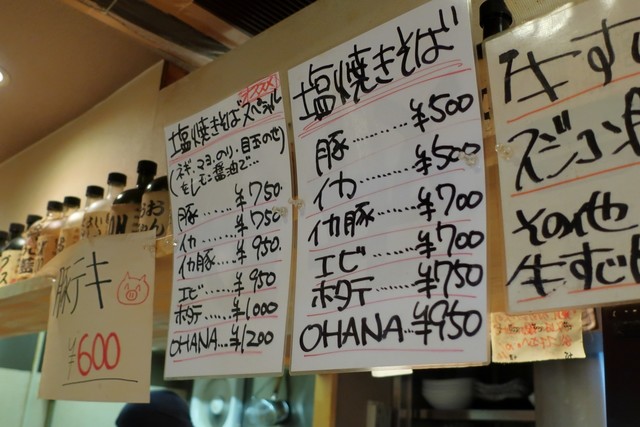 豚テキ
¥600
オススメ
塩焼きそばスペシャル
(ネギ、マヨ、のり、目玉のせ)
豚……¥750
イカ……¥750
イカ豚……¥950
エビ……¥950
ホタテ……¥1000
OHANA……¥1200
塩焼きそば
豚………¥500
イカ………¥500
イカ豚………¥700
エビ………¥700
ホタテ………¥750
OHANA…¥950
牛すじ
スジコン
その他
牛すじ